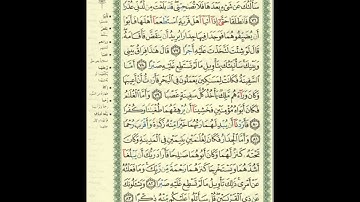 سَأَلْتُكَ عَن شَىْءٍۭ بَعْدَهَا فَلَا تُصَٰحِبْنِى ۖ قَدْ بَلَغْتَ مِن لَّدُنِّى عُذْرًا
﴿٧٦﴾ فَٱنطَلَقَا حَتَّىٰٓ إِذَآ أَتَيَآ أَهْلَ قَرْيَةٍ ٱسْتَطْعَمَآ أَهْلَهَا فَأَبَوْا۟
أَن يُضَيِّفُوهُمَا فَوَجَدَا فِيهَا جِدَارًا يُرِيدُ أَن يَنقَضَّ فَأَقَامَهُۥ ۖ
قَالَ لَوْ شِئْتَ لَتَّخَذْتَ عَلَيْهِ أَجْرًا ﴿٧٧﴾ قَالَ هَٰذَا فِرَاقُ بَيْنِى
وَبَيْنِكَ ۚ سَأُنَبِّئُكَ بِتَأْوِيلِ مَا لَمْ تَسْتَطِع عَّلَيْهِ صَبْرًا ﴿٧٨﴾ أَمَّا
ٱلسَّفِينَةُ فَكَانَتْ لِمَسَٰكِينَ يَعْمَلُونَ فِى ٱلْبَحْرِ فَأَرَدتُّ أَنْ أَعِيبَهَا
وَكَانَ وَرَآءَهُم مَّلِكٌ يَأْخُذُ كُلَّ سَفِينَةٍ غَصْبًا ﴿٧٩﴾ وَأَمَّا ٱلْغُلَٰمُ
فَكَانَ أَبَوَاهُ مُؤْمِنَيْنِ فَخَشِينَآ أَن يُرْهِقَهُمَا طُغْيَٰنًا وَكُفْرًا
﴿٨٠﴾ فَأَرَدْنَآ أَن يُبْدِلَهُمَا رَبُّهُمَا خَيْرًا مِّنْهُ زَكَوٰةً وَأَقْرَبَ رُحْمًا
﴿٨١﴾ وَأَمَّا ٱلْجِدَارُ فَكَانَ لِغُلَٰمَيْنِ يَتِيمَيْنِ فِى ٱلْمَدِينَةِ وَكَانَ
تَحْتَهُۥ كَنزٌ لَّهُمَا وَكَانَ أَبُوهُمَا صَٰلِحًا فَأَرَادَ رَبُّكَ أَن يَبْلُغَآ
أَشُدَّهُمَا وَيَسْتَخْرِجَا كَنزَهُمَا رَحْمَةً مِّن رَّبِّكَ ۚ وَمَا فَعَلْتُهُۥ
عَنْ أَمْرِى ۚ ذَٰلِكَ تَأْوِيلُ مَا لَمْ تَسْطِع عَّلَيْهِ صَبْرًا ﴿٨٢﴾ وَيَسْـَٔلُونَكَ
عَن ذِى ٱلْقَرْنَيْنِ ۖ قُلْ سَأَتْلُوا۟ عَلَيْكُم مِّنْهُ ذِكْرًا ﴿٨٣﴾